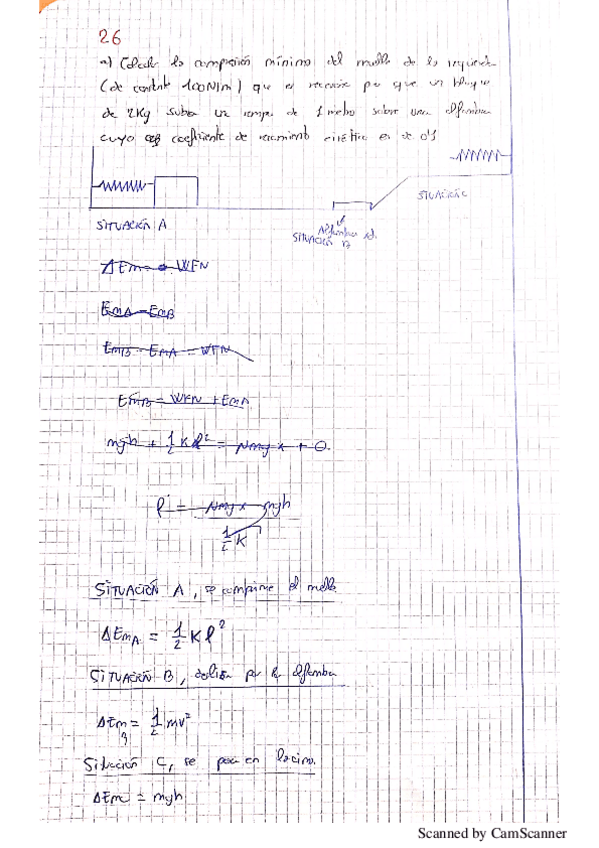 26
a) Calcula la compresión mínima del muelle de la izquierda
(de constante 100N/m) que es necesaria para que un bloque
de 2Kg suba una rampa de 1 metro sobre una alfombra
cuyo coeficiente de rozamiento cinético es de 0'4
SITUACIÓN A
Alfombra
SITUACIÓN B
SITUACIÓN C
ΔEm = WFN
EmA = EmB
EmB - EmA = WFN
EmB = WFN + EmA
mgh + 1/2 K l² = μmg x + 0.
l = μmg x mgh
1/2 K
SITUACIÓN A, se comprime el muelle
ΔEmA = 1/2 K l²
SITUACIÓN B, desliza por la alfombra
ΔEmB = 1/2 mv²
Situación C, se para en la cima.
ΔEm = mgh
Scanned by CamScanner